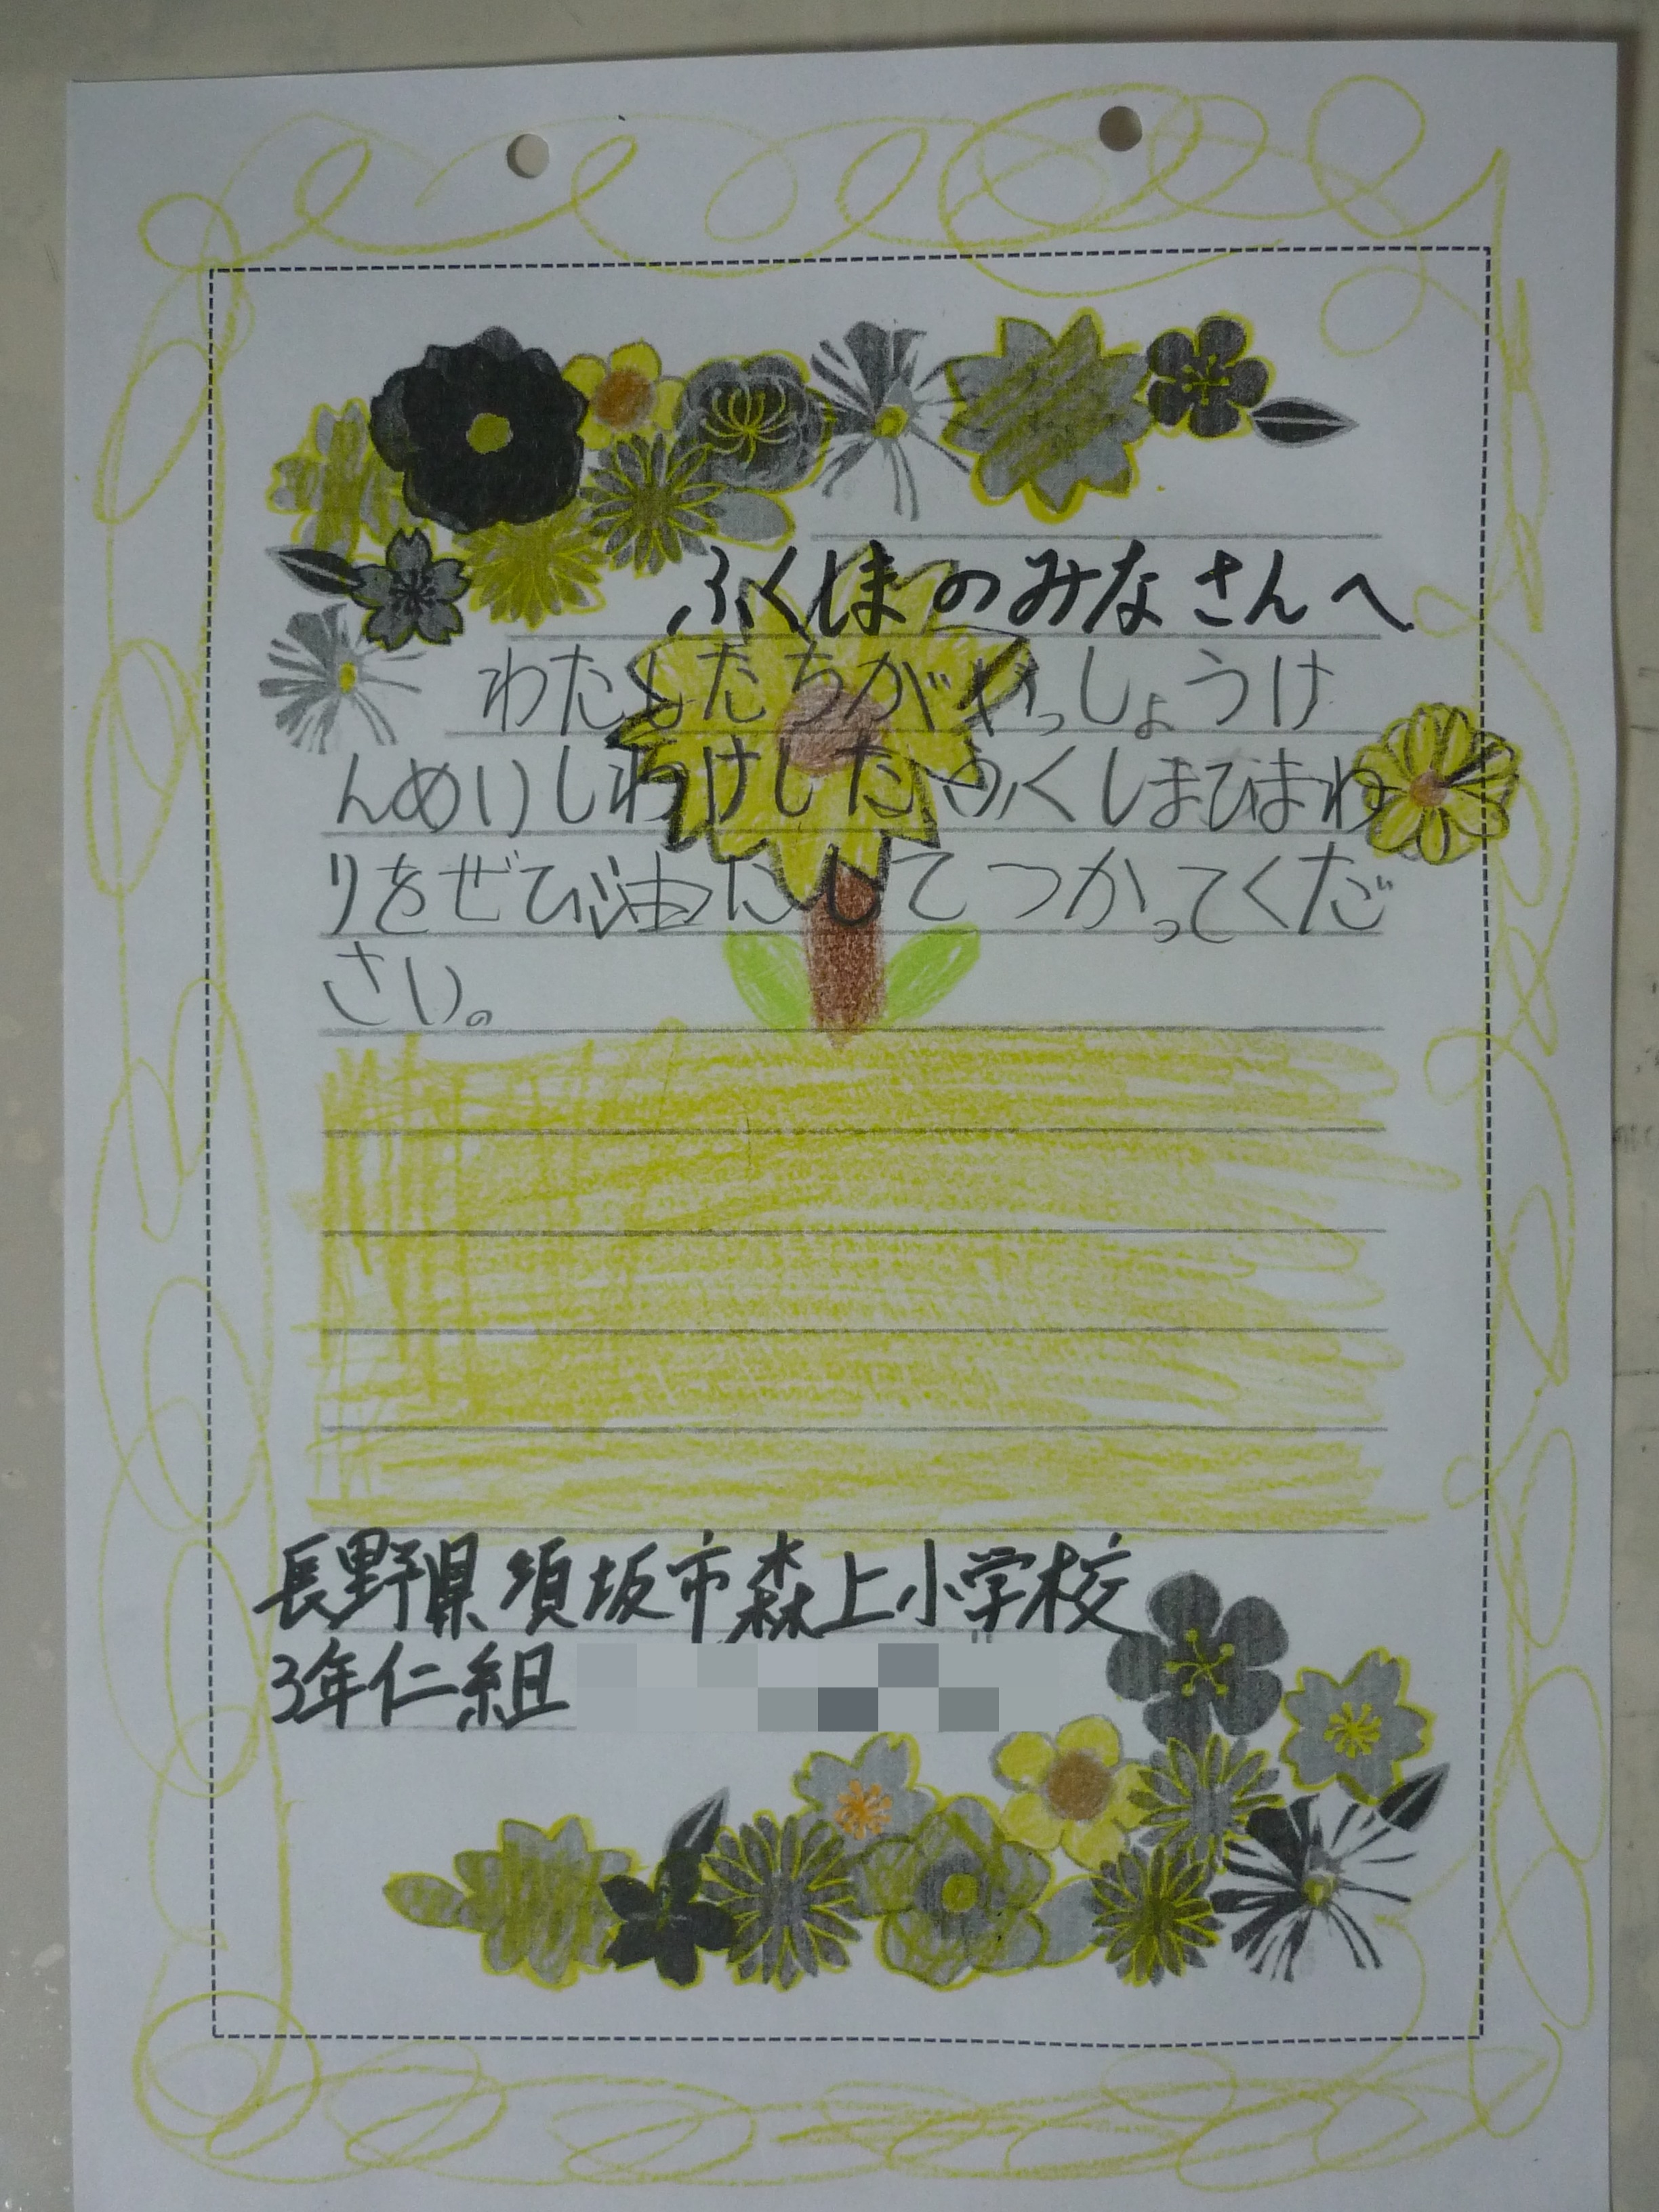 ふくしまのみなさんへ
わたしたちがいっしょうけ
んめいしわけしたふくしまひまわ
りをぜひ油にしてつかってくだ
さい。
長野県須坂市森上小学校
3年仁組